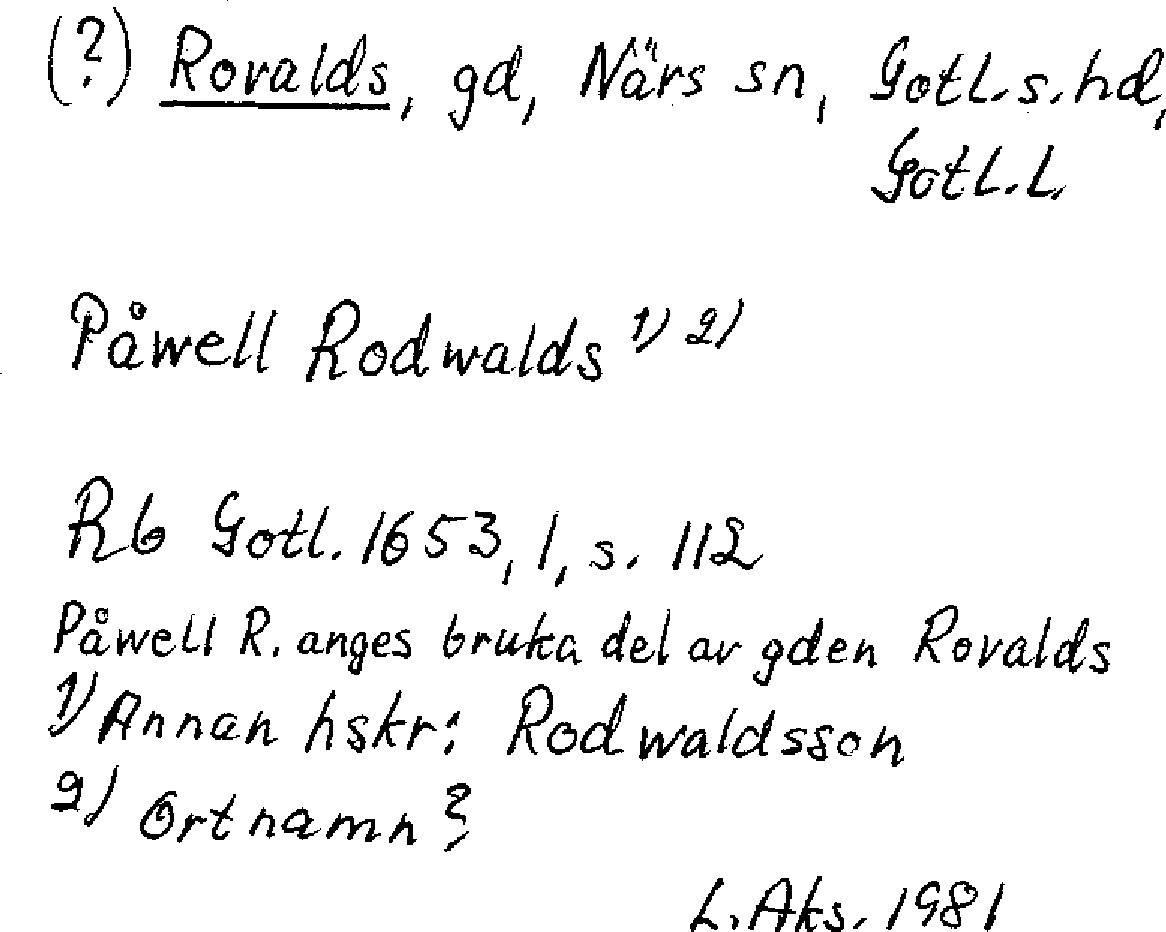 (?) Rovalds, gd, Närs sn, Gotl.s.hd,
Gotl.L.
Påwell Rodwalds 1) 2)
Rb Gotl. 1653, 1, s. 112
Påwell R. anges bruka del av gden Rovalds
1) Annan hskr: Rodwaldsson
2) Ortnamn?
L. Aks. 1981